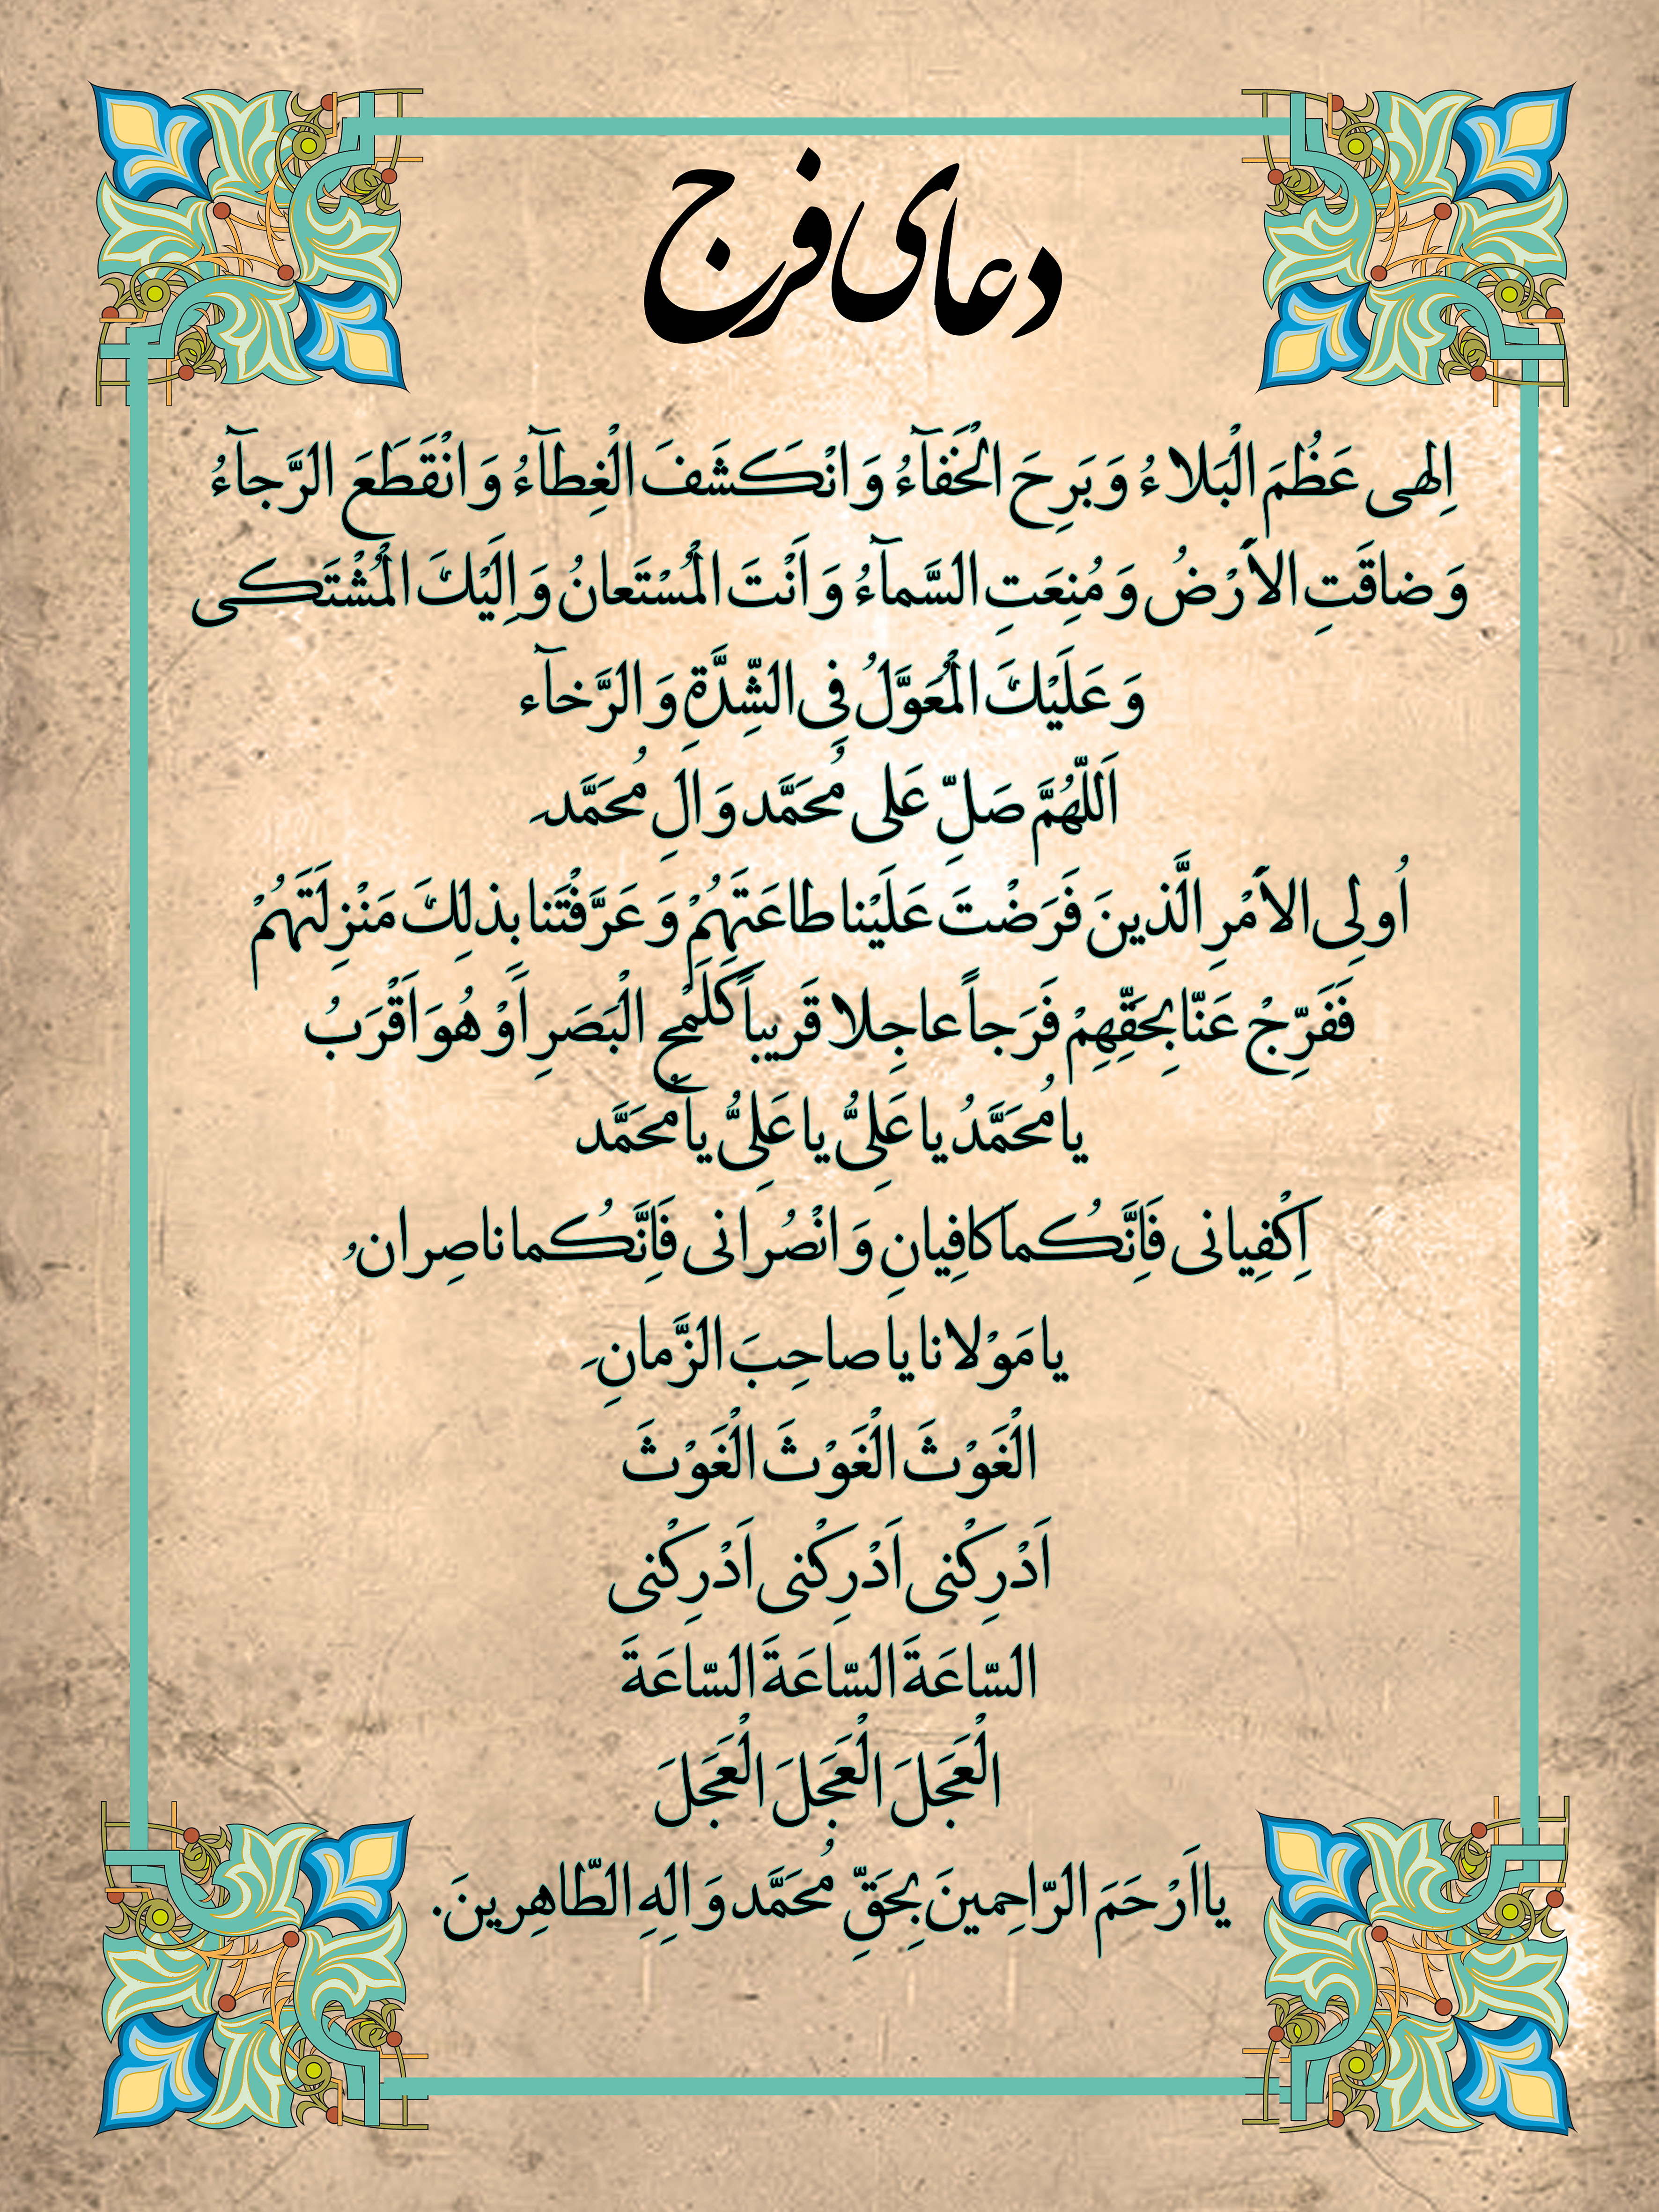 دعای فرج
اِلهى عَظُمَ الْبَلاءُ وَ بَرِحَ الْخَفآءُ وَ انْكَشَفَ الْغِطآءُ وَ انْقَطَعَ الرَّجآءُ
وَ ضاقَتِ الاَْرْضُ وَ مُنِعَتِ السَّمآءُ وَ اَنْتَ الْمُسْتَعانُ وَ اِلَيْكَ الْمُشْتَكى
وَ عَلَيْكَ الْمُعَوَّلُ فِى الشِّدَّةِ وَ الرَّخآء
اَللّهُمَّ صَلِّ عَلى مُحَمَّد وَ الِ مُحَمَّدَ
اُولِى الاَْمْرِ الَّذينَ فَرَضْتَ عَلَيْنا طاعَتَهُمْ وَ عَرَّفْتَنا بِذلِكَ مَنْزِلَتَهُمْ
فَفَرِّجْ عَنّا بِحَقِّهِمْ فَرَجاً عاجِلا قَريباً كَلَمْحِ الْبَصَرِ اَوْ هُوَ اَقْرَبُ
يا مُحَمَّدُ يا عَلِىُّ يا عَلِىُّ يا مُحَمَّد
اِكْفِيانى فَاِنَّكُما كافِيانِ وَ انْصُرانى فَاِنَّكُما ناصِرانُ
يا مَوْلانا يا صاحِبَ الزَّمانِ
الْغَوْثَ الْغَوْثَ الْغَوْثَ
اَدْرِكْنى اَدْرِكْنى اَدْرِكْنى
السّاعَةَ السّاعَةَ السّاعَةَ
الْعَجَلَ الْعَجَلَ الْعَجَلَ
يا اَرْحَمَ الرّاحِمينَ بِحَقِّ مُحَمَّد وَ الِهِ الطّاهِرينَ.